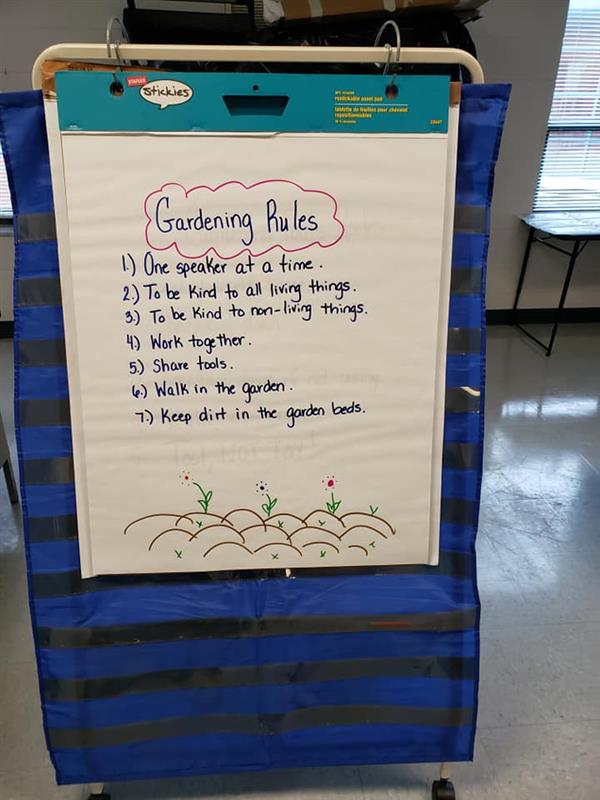 STAPLES
stickies
restickable easel pad
tablette de feuilles pour chevalet
repositionnables
Gardening Rules
1.) One speaker at a time.
2.) To be kind to all living things.
3.) To be kind to non-living things.
4.) Work together.
5.) Share tools.
6.) Walk in the garden.
7.) Keep dirt in the garden beds.